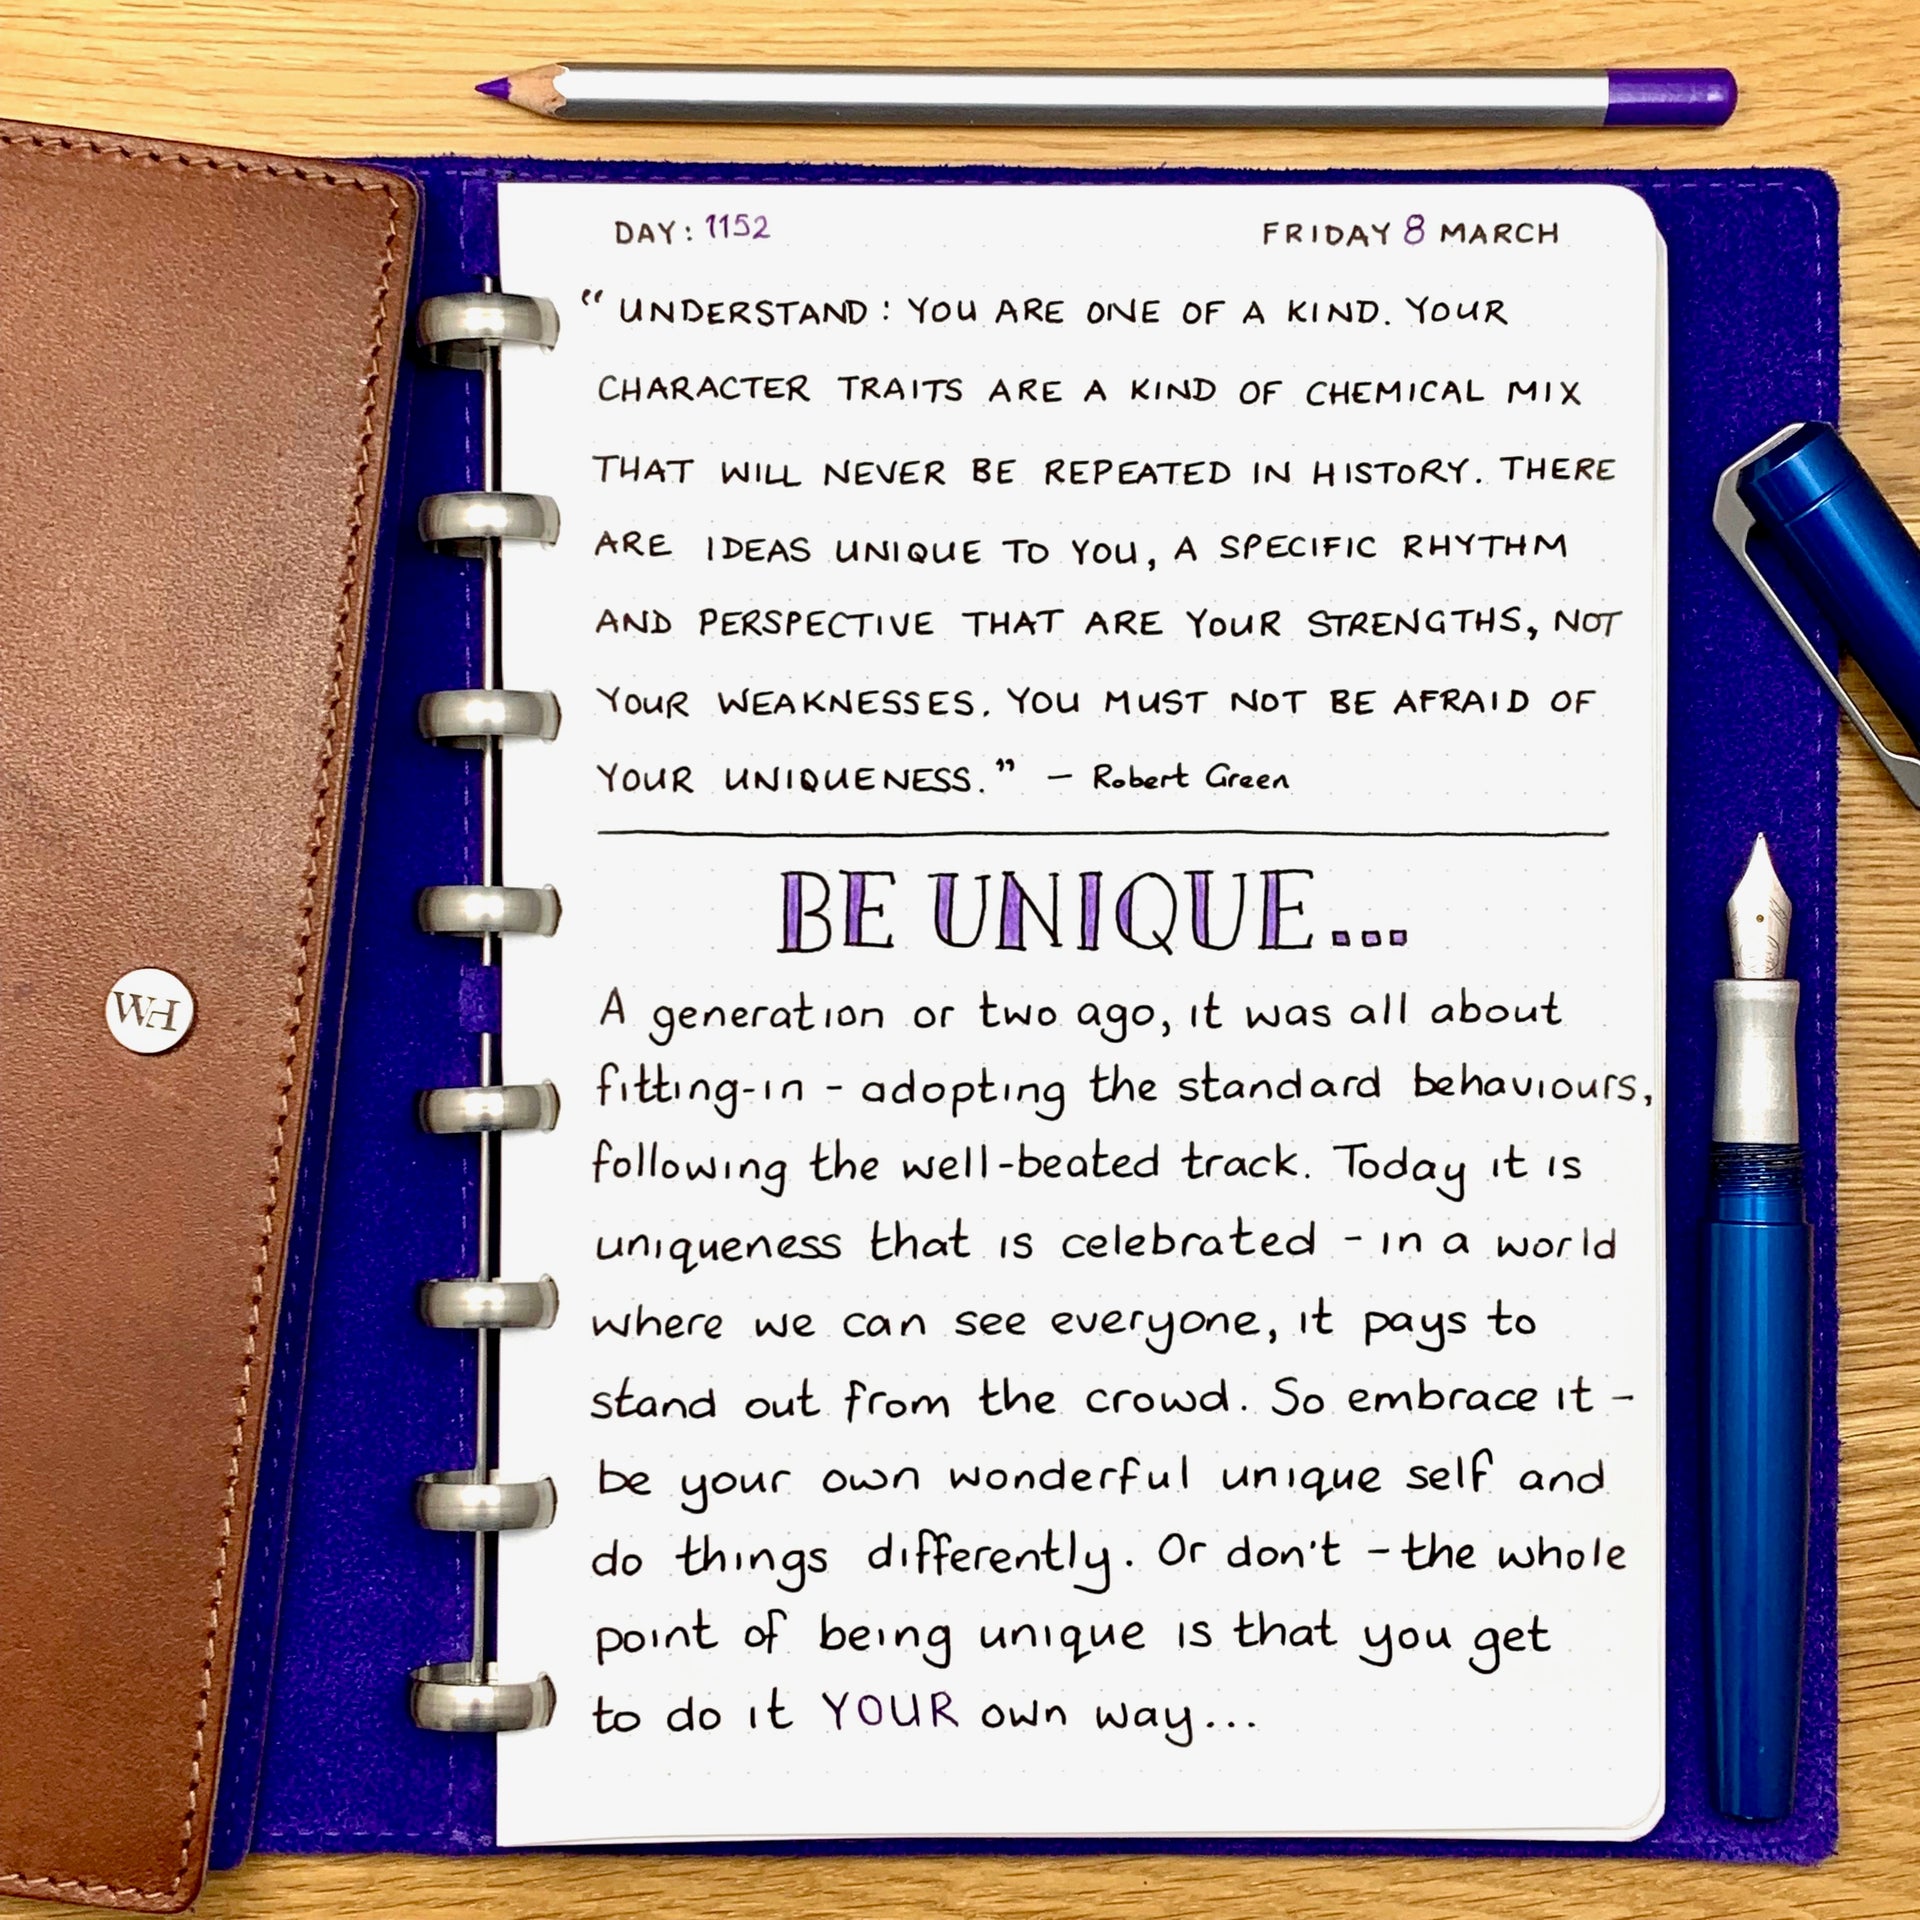 DAY: 1152 FRIDAY 8 MARCH
“UNDERSTAND: YOU ARE ONE OF A KIND. YOUR
CHARACTER TRAITS ARE A KIND OF CHEMICAL MIX
THAT WILL NEVER BE REPEATED IN HISTORY. THERE
ARE IDEAS UNIQUE TO YOU, A SPECIFIC RHYTHM
AND PERSPECTIVE THAT ARE YOUR STRENGTHS, NOT
YOUR WEAKNESSES. YOU MUST NOT BE AFRAID OF
YOUR UNIQUENESS.” – Robert Green
BE UNIQUE...
A generation or two ago, it was all about
fitting-in - adopting the standard behaviours,
following the well-beated track. Today it is
uniqueness that is celebrated - in a world
where we can see everyone, it pays to
stand out from the crowd. So embrace it -
be your own wonderful unique self and
do things differently. Or don't - the whole
point of being unique is that you get
to do it YOUR own way...
WH